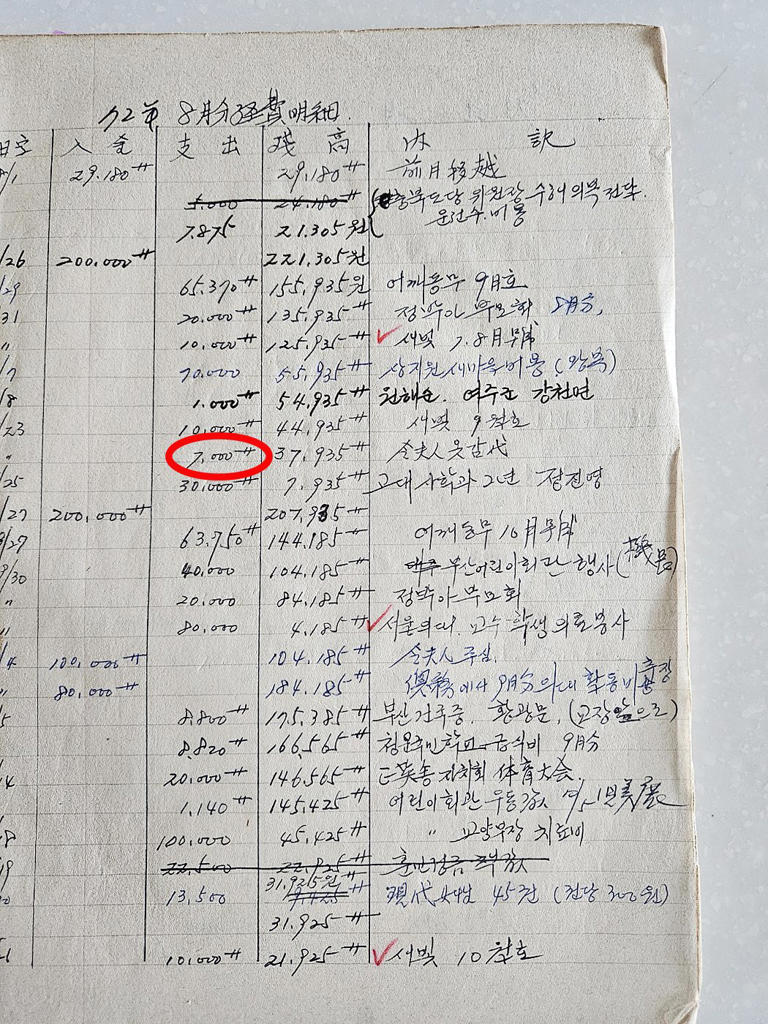 72年 8月分 經費明細
日字 入金 支出 残高 内訳
/1 29.180 29.180 前月移越
5.000 24.180 충북도당 위원장 수허 의복 전달.
7.875 21.305원 운전수.비용
/26 200.000 221.305원
/29 65.370 155.935원 어깨동무 9月호
31 20.000 135.935 정박아 부모회 8月分,
〃 10.000 125.935 새빛 7.8月号
/7 70.000 55.935 상지원 새마을 비용
/8 1.000 54.935 원해순. 여주군 강천면
/23 10.000 44.935 새빛 9월호
〃 7.000 37.935 令夫人 옷감代
/25 30.000 7.935 고대 사학과 2년 정진영
/27 200.000 207.935
/27 63.750 144.185 어깨동무 10月号
/30 40.000 104.185 부산어린이회관 행사
〃 20.000 84.185 정박아 부모회
〃 80.000 4.185 서울의대. 교수 학생 의료봉사
/4 100.000 104.185 令夫人 주심.
〃 80.000 184.185 에서 9月分 의대 활동비
5 8.800 175.385 부산 건주중. 황광문, (교장앞으로)
8.820 166.565 청운국민학교 급식비 9月分
/4 20.000 146.565 正英舍 자치회 体育大会.
1.140 145.425 어린이회관
/8 100.000 45.425 〃 교양부장 치료비
/19 22.500 22.925
13.500 31.925원 9.425 現代女性 45권 (권당 300원)
31.925
21 10.000 21.925 새빛 10월호